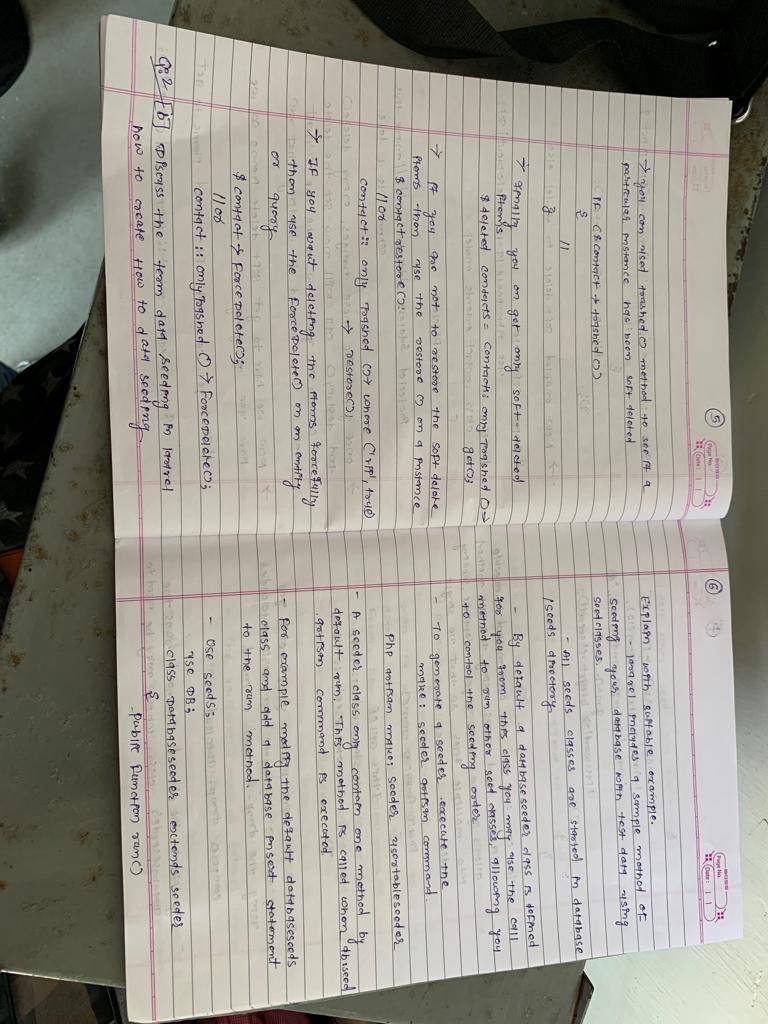 5
Page No.
Date: / /
→ you can used trashed() method to see if a
particular instance has been soft deleted
if ($contact → trashed())
{
//
}
→ Finally you can get only soft-deleted
items.
$deleted contacts = contact:: only Trashed () →
get();
→ If you are not to restore the soft delete
items then use the restore () on a instance
$contact restore();
// or
contact:: only Trashed () → where ('vip', true)
→ restore();
→ IF you want deleting the items forcefully
then use the ForceDelete() on an entity
or query.
$contact → ForceDelete();
// or
contact :: onlyTrashed () → ForceDelete();
Q:2 [b] Discuss the term data seeding in laravel
how to create How to data seeding
6
Page No.
Date: / /
Explain with suitable example.
- laravel includes a sample method of
seeding your database with test data using
seed classes.
- All seeds classes are started in database
/seeds directory.
- By default a databaseseeder class is defined
for you from this class you may use the call
method to run other seed classes, allowing you
to control the seeding order
- To generate a seeder, execute the
make: seeder artisan command
Php artisan make: seeder usertableseeder
- A seeder class only contain one method by
default run. This method is called when db:seed
artisan command is executed.
- For example modify the default databaseseeds
class and add a database insert statement
to the run method.
- Use seeds;
use DB;
class Databaseseeder extends seeder
{
public function run()